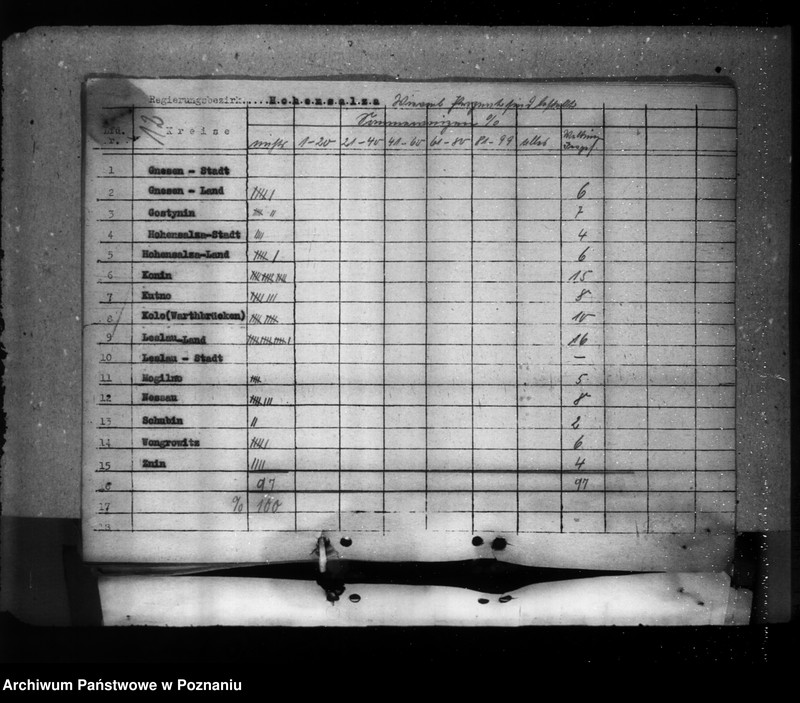 Regierungsbezirk....Hohensalza Wieviel sind
13
Lfd. Kreise Sommerweizen %
Nr. nichts 1-20 21-40 41-60 61-80 81-99 alles
1 Gnesen - Stadt
2 Gnesen - Land 6
3 Gostynin 7
4 Hohensalza-Stadt 4
5 Hohensalza-Land 6
6 Konin 15
7 Kutno 8
8 Kolo(Warthbrücken) 10
9 Leslau-Land 16
10 Leslau - Stadt —
11 Mogilno 5
12 Nessau 8
13 Schubin 2
14 Wongrowitz 6
15 Znin 4
6 97 97
17 % 100
18
Archiwum Państwowe w Poznaniu